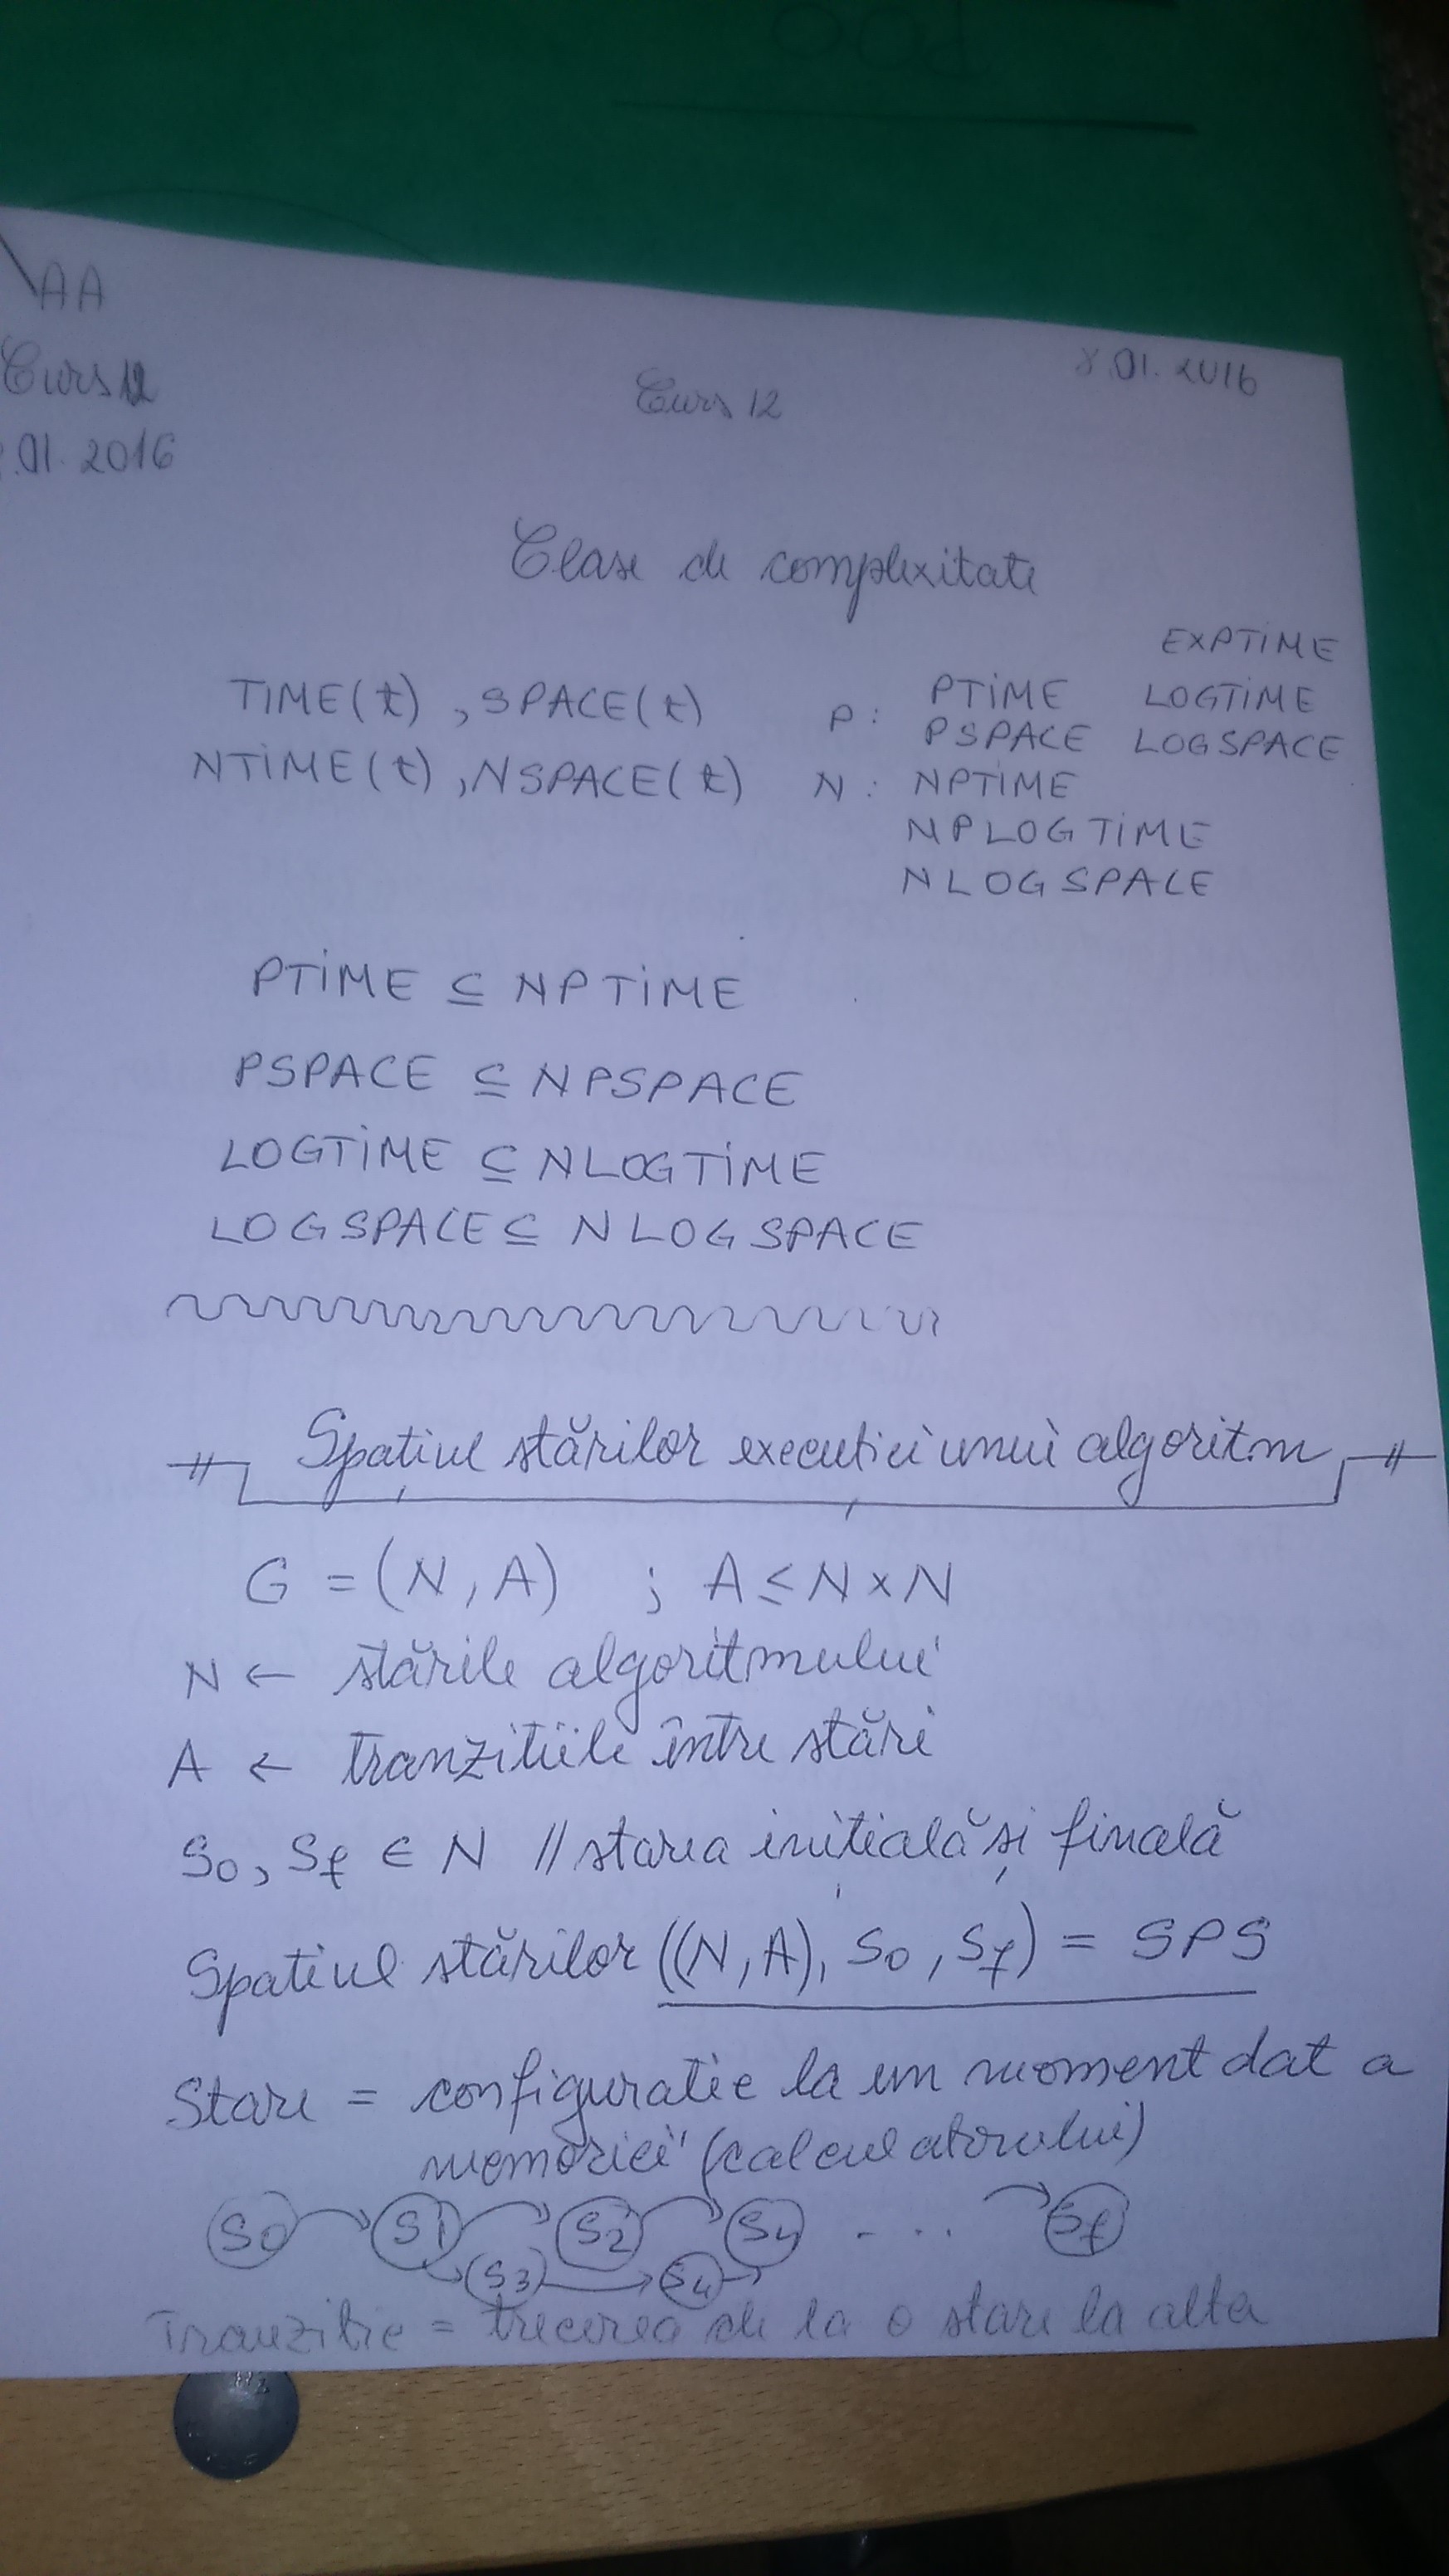 POO
AA
Curs 12
.01.2016
Curs 12
8.01.2016
Clase de complexitate
EXPTIME
TIME(t), SPACE(t) P: PTIME LOGTIME
PSPACE LOGSPACE
NTIME(t), NSPACE(t) N: NPTIME
NPLOGTIME
NLOGSPACE
PTIME ⊆ NPTIME
PSPACE ⊆ NPSPACE
LOGTIME ⊆ NLOGTIME
LOGSPACE ⊆ NLOGSPACE
Spațiul stărilor execuției unui algoritm
G = (N, A) ; A ≤ N × N
N ← stările algoritmului
A ← tranzitiile între stări
S0, Sf ∈ N // starea inițială și finală
Spatiul stărilor ((N, A), S0, Sf) = SPS
Stare = configuratie la un moment dat a
memoriei (calculatorului)
S0 S1 S2 S4 . . . Sf
S3 S4
Tranzitie = trecerea de la o stare la alta